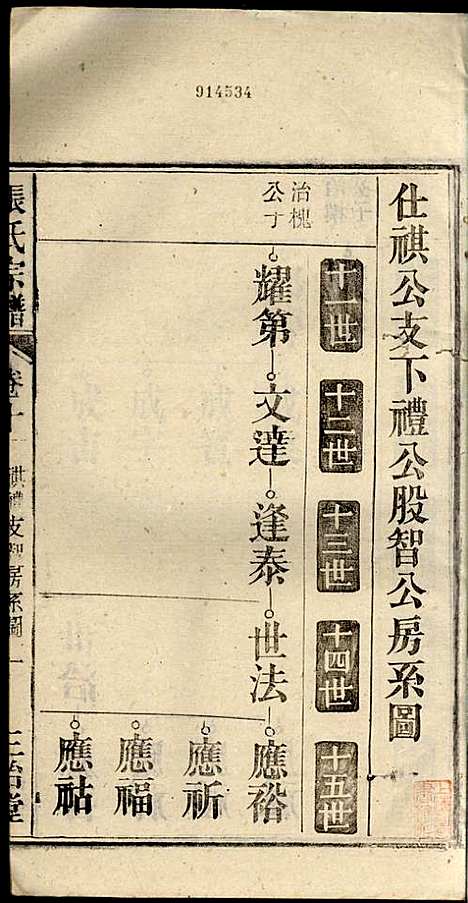 914534
仕祺公支下禮公股智公房系圖
十一世 十二世 十三世 十四世 十五世
治槐
公子
耀第 文達 逢泰 世法 應裕
應祈
應福
應祜
張氏宗譜 卷十 祺禮支智房系圖